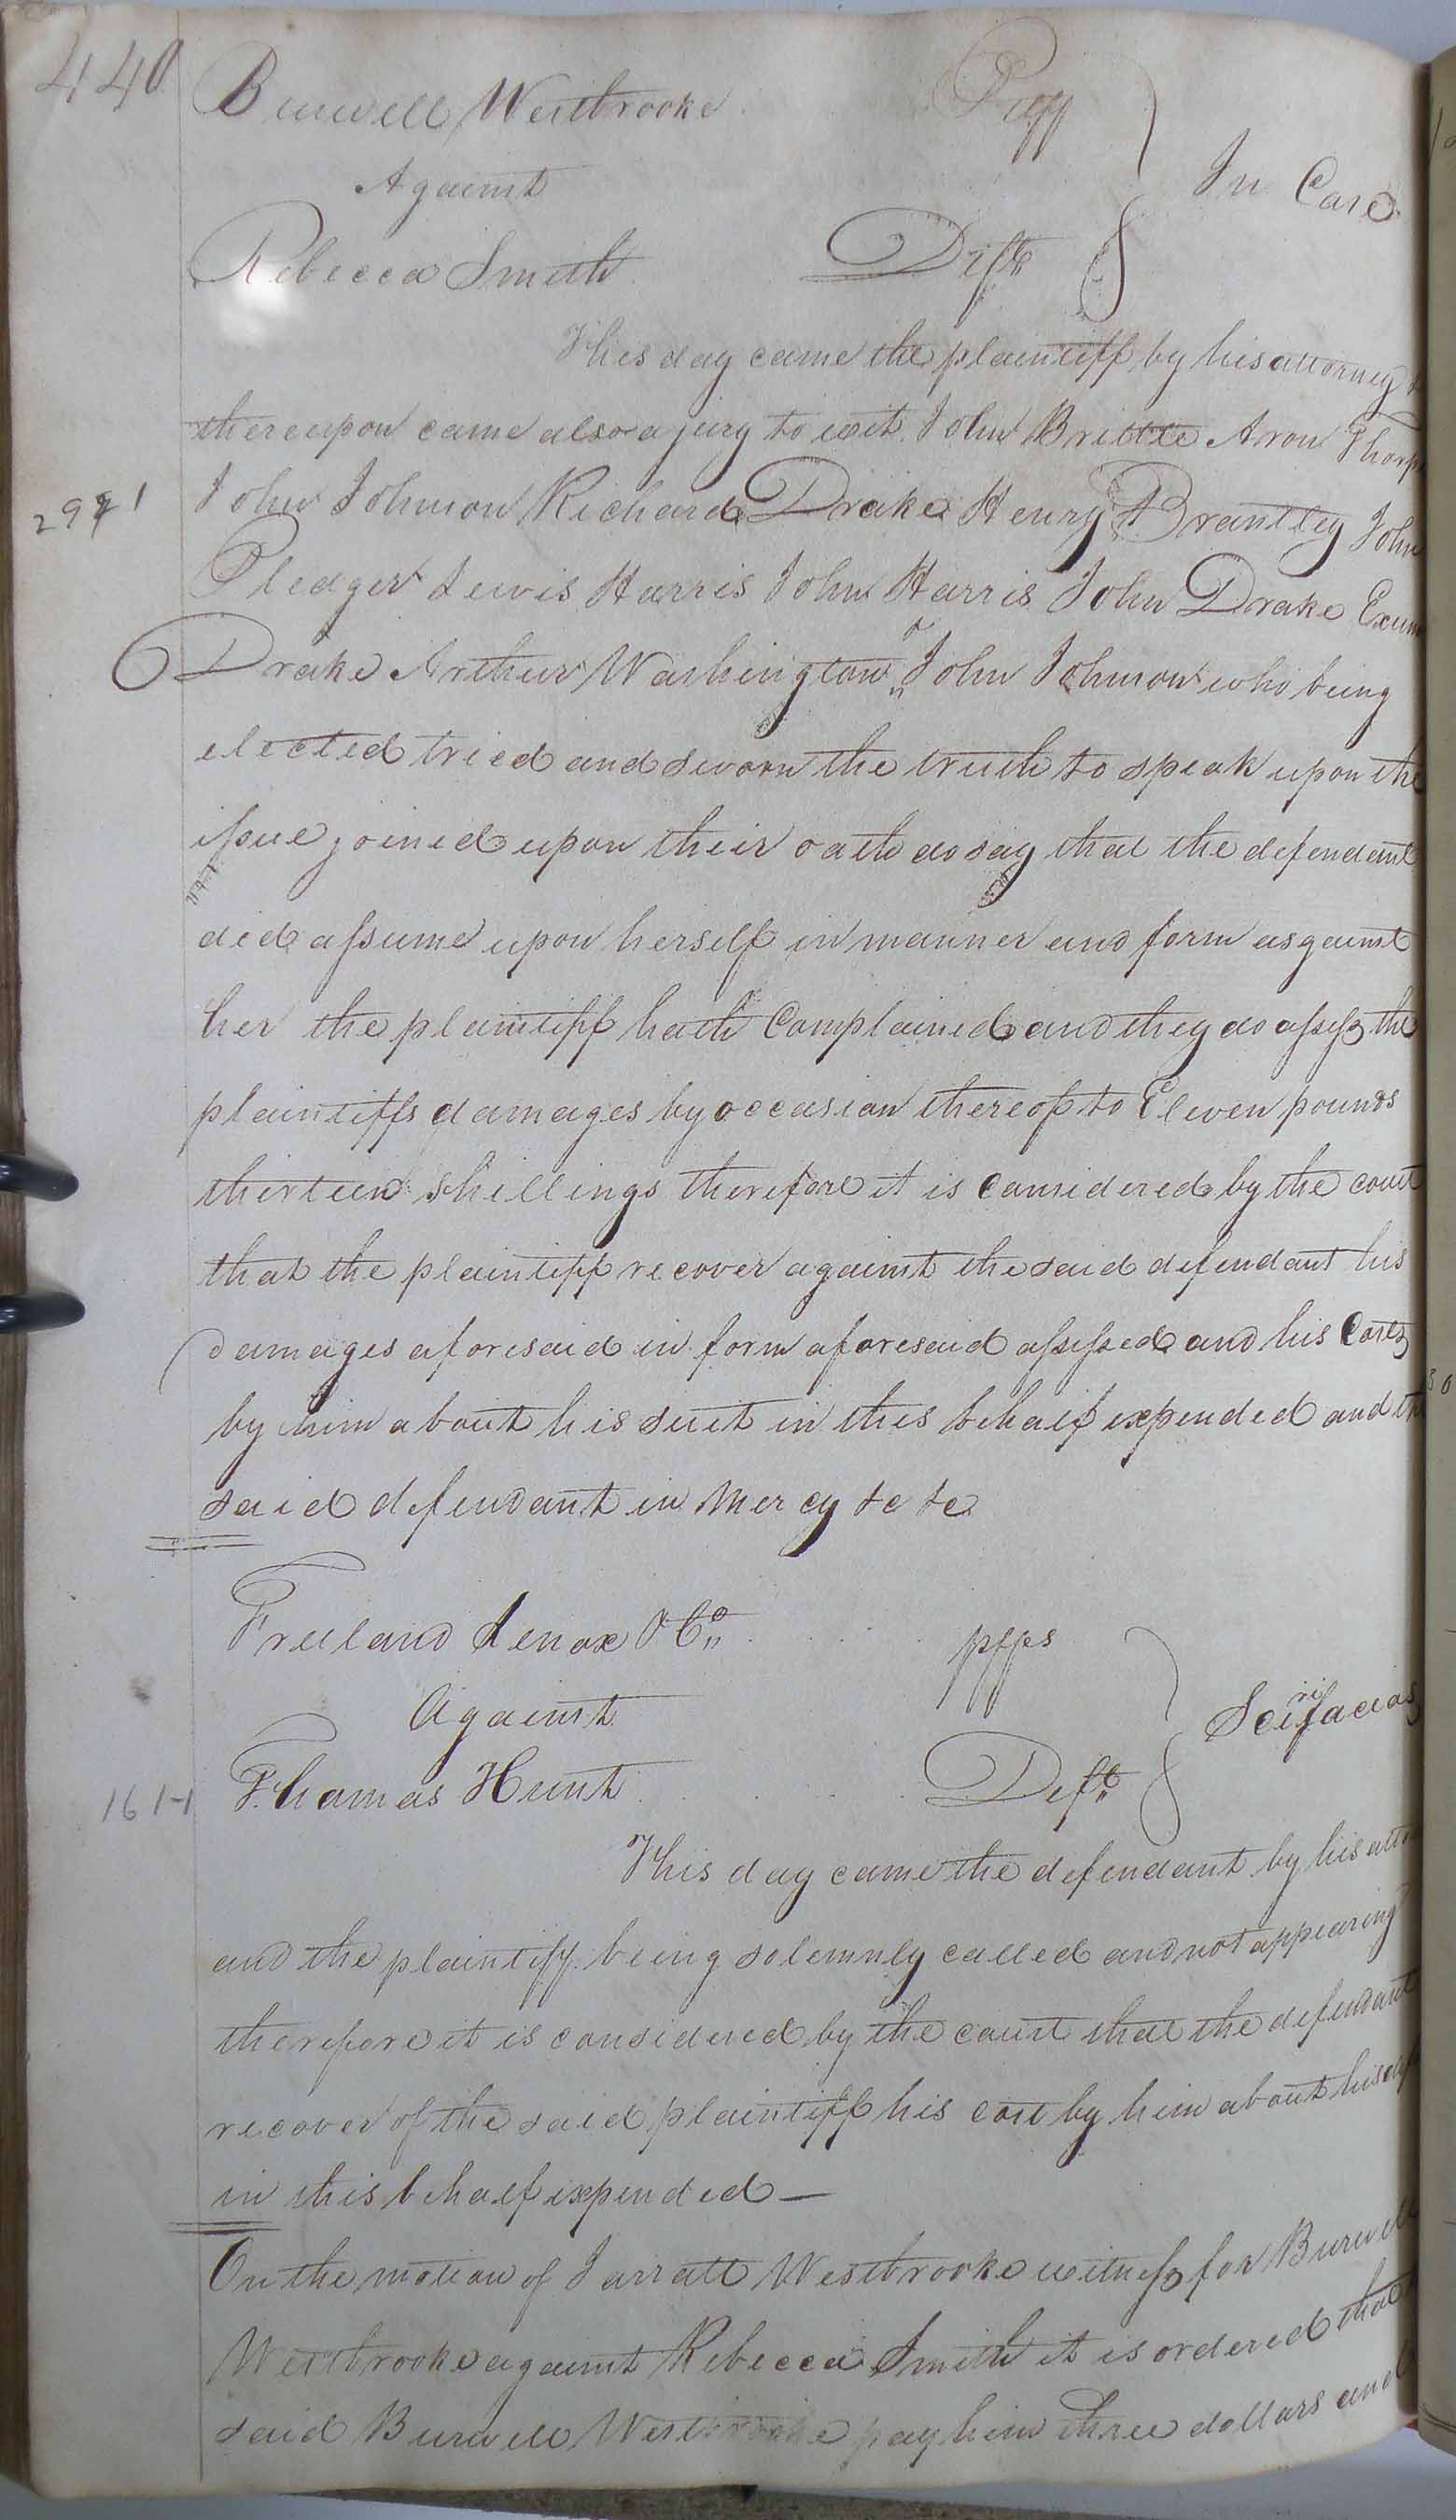 440
Burwell Westbrooke Plff
Against
In Case
Rebecca Smith Deft
This day came the plaintiff by his attorney
thereupon came also a jury to wit John Brittle Aron Thorp
2971
John Johnson Richard Drake Henry Brantley John
Pledger Lewis Harris John Harris John Drake Exum
Drake Arthur Washington & John Johnson who being
elected tried and sworn the truth to speak upon the
issue joined upon their oath do say that the defendant
did assume upon herself in manner and form as against
her the plaintiff hath Complained and they do assess the
plaintiffs damages by occasion thereof to Eleven pounds
thirteen shillings therefore it is Considered by the court
that the plaintiff recover against the said defendant his
damages aforesaid in form aforesaid assessed and his Costs
by him about his suit in this behalf expended and the
said defendant in Mercy &c &c
Freeland Lenox & Co plffs
Against
Scirifacias
161-1
Thomas Hunt Deft
This day came the defendant by his atto
and the plaintiff being solemnly called and not appearing
therefore it is considered by the court that the defendant
recover of the said plaintiff his cost by him about his
in this behalf expended —
On the motion of Jarratt Westbrooke witness for Burwell
Westbrooke against Rebecca Smith it is ordered that
said Burwell Westbrooke pay him three dollars and